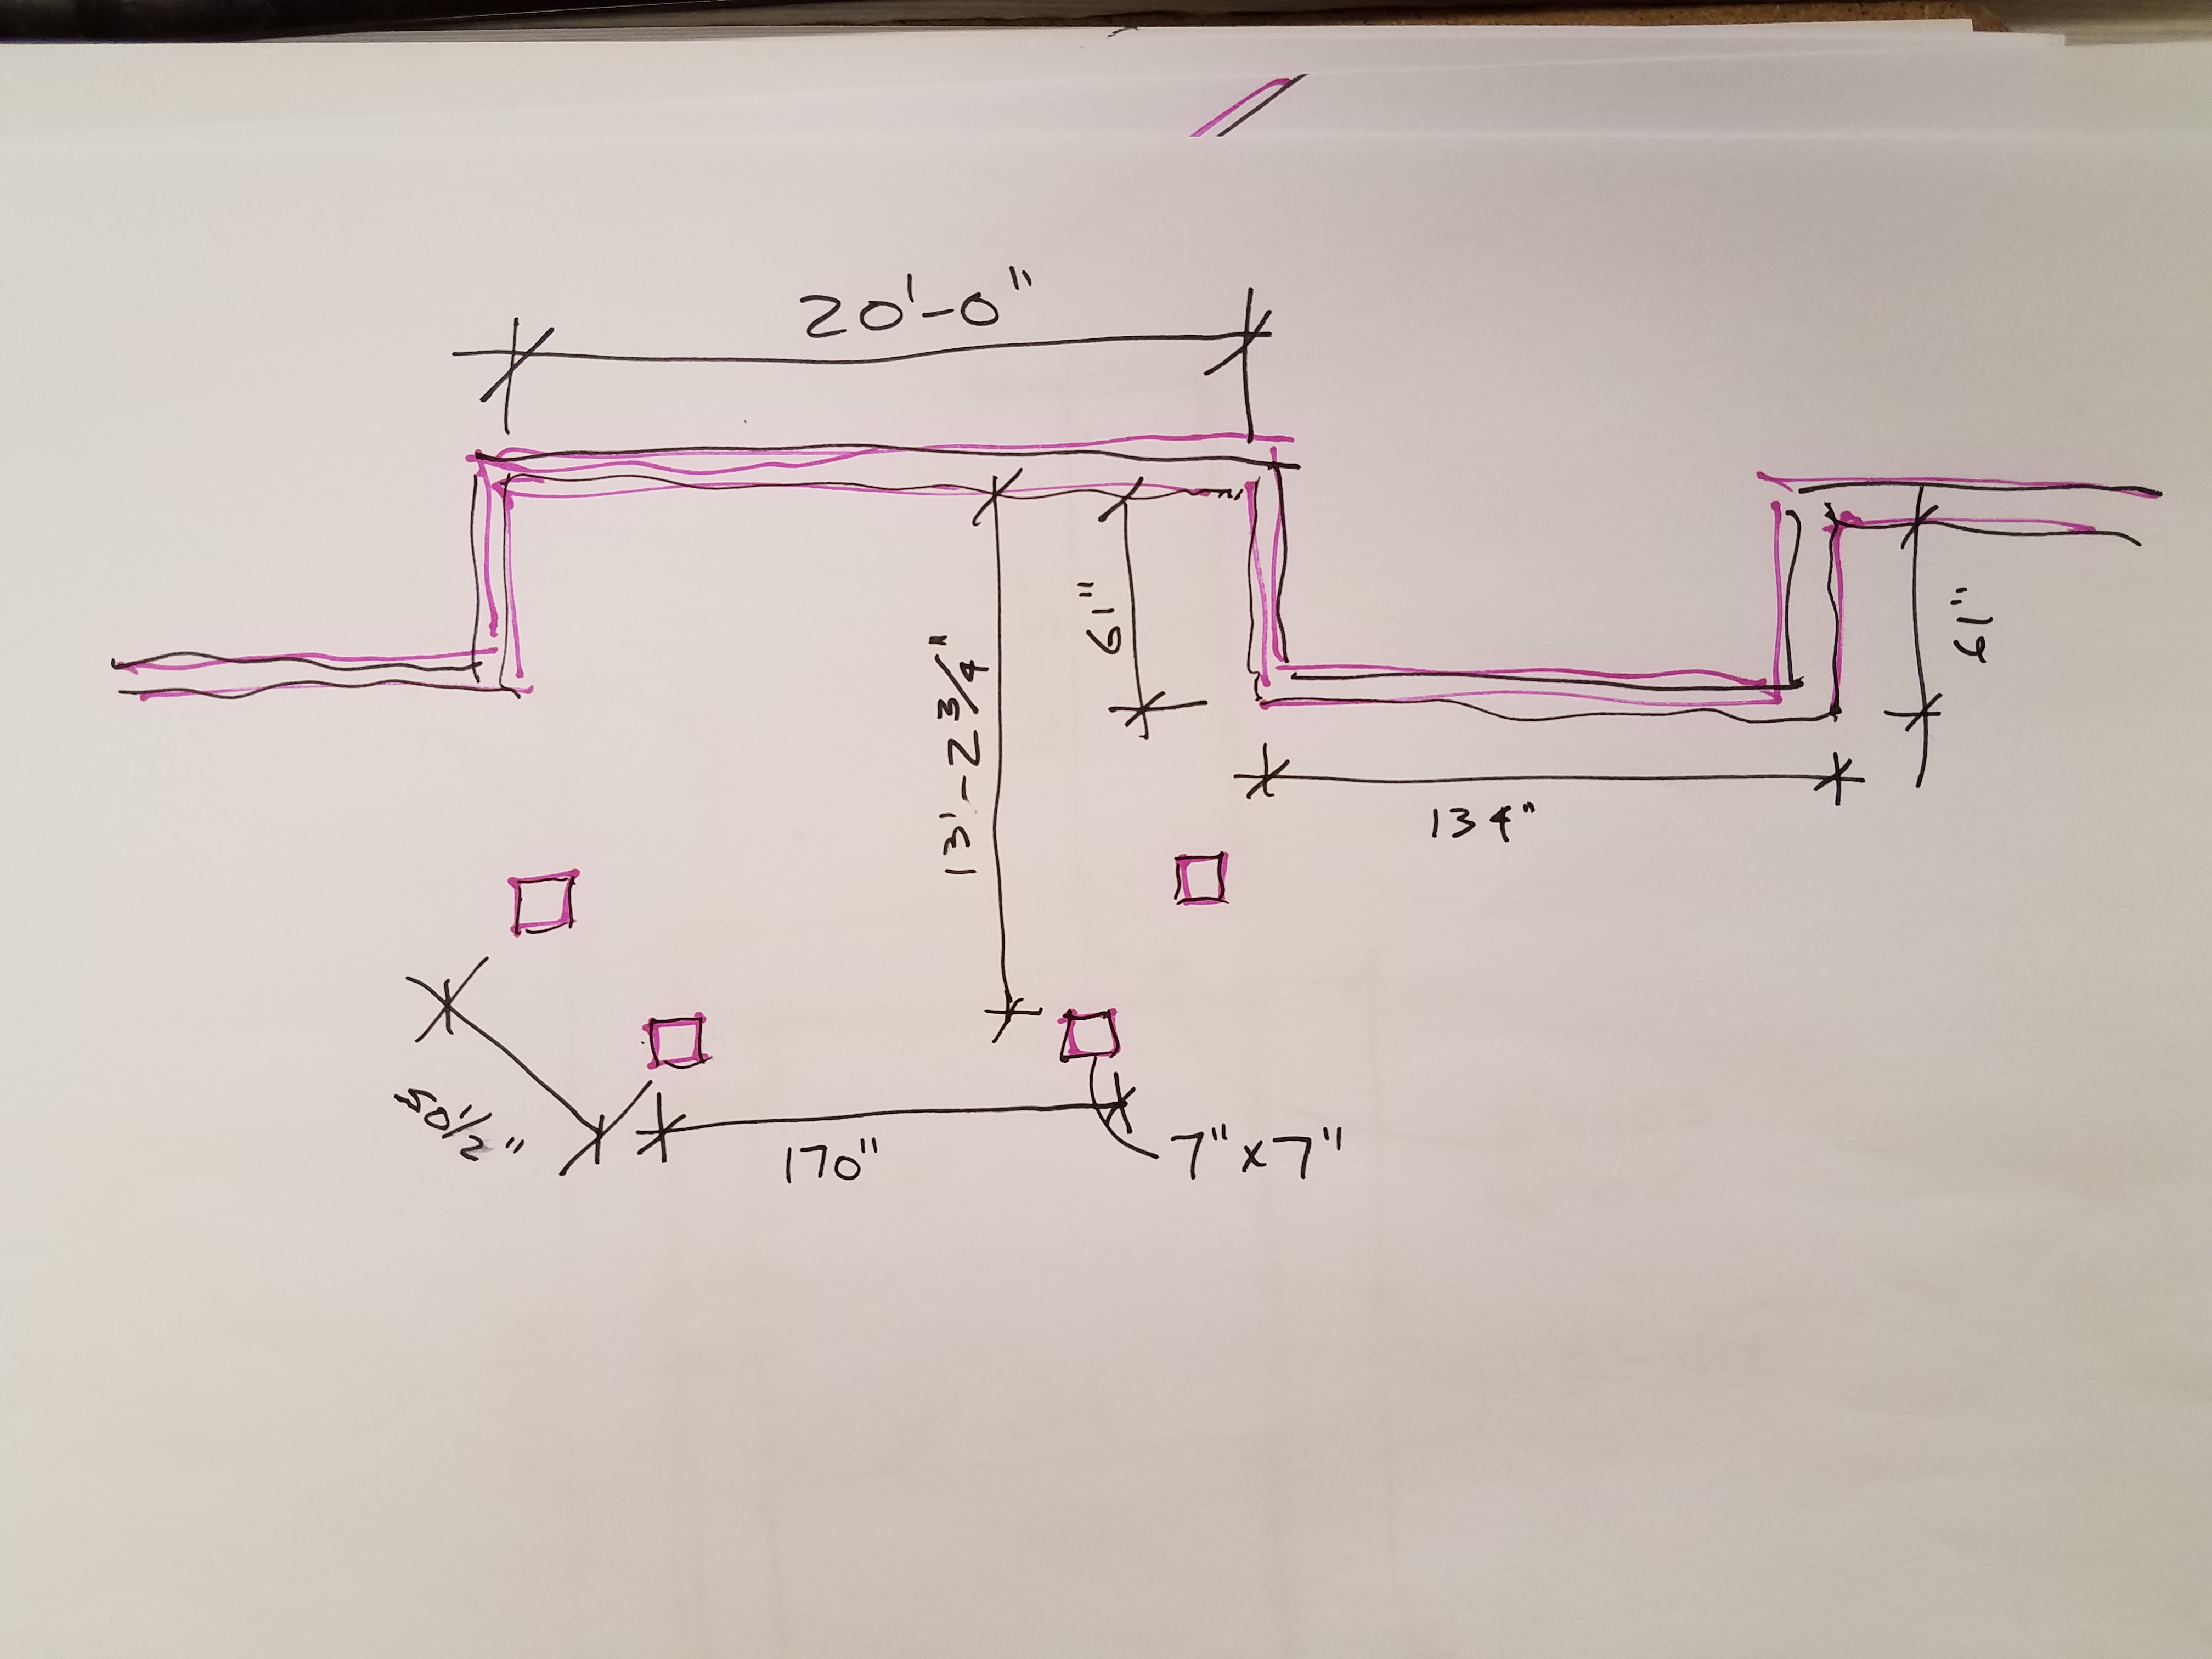 20'-0"
61"
61"
13'-2 3/4"
134"
50 1/2"
170"
7" x 7"